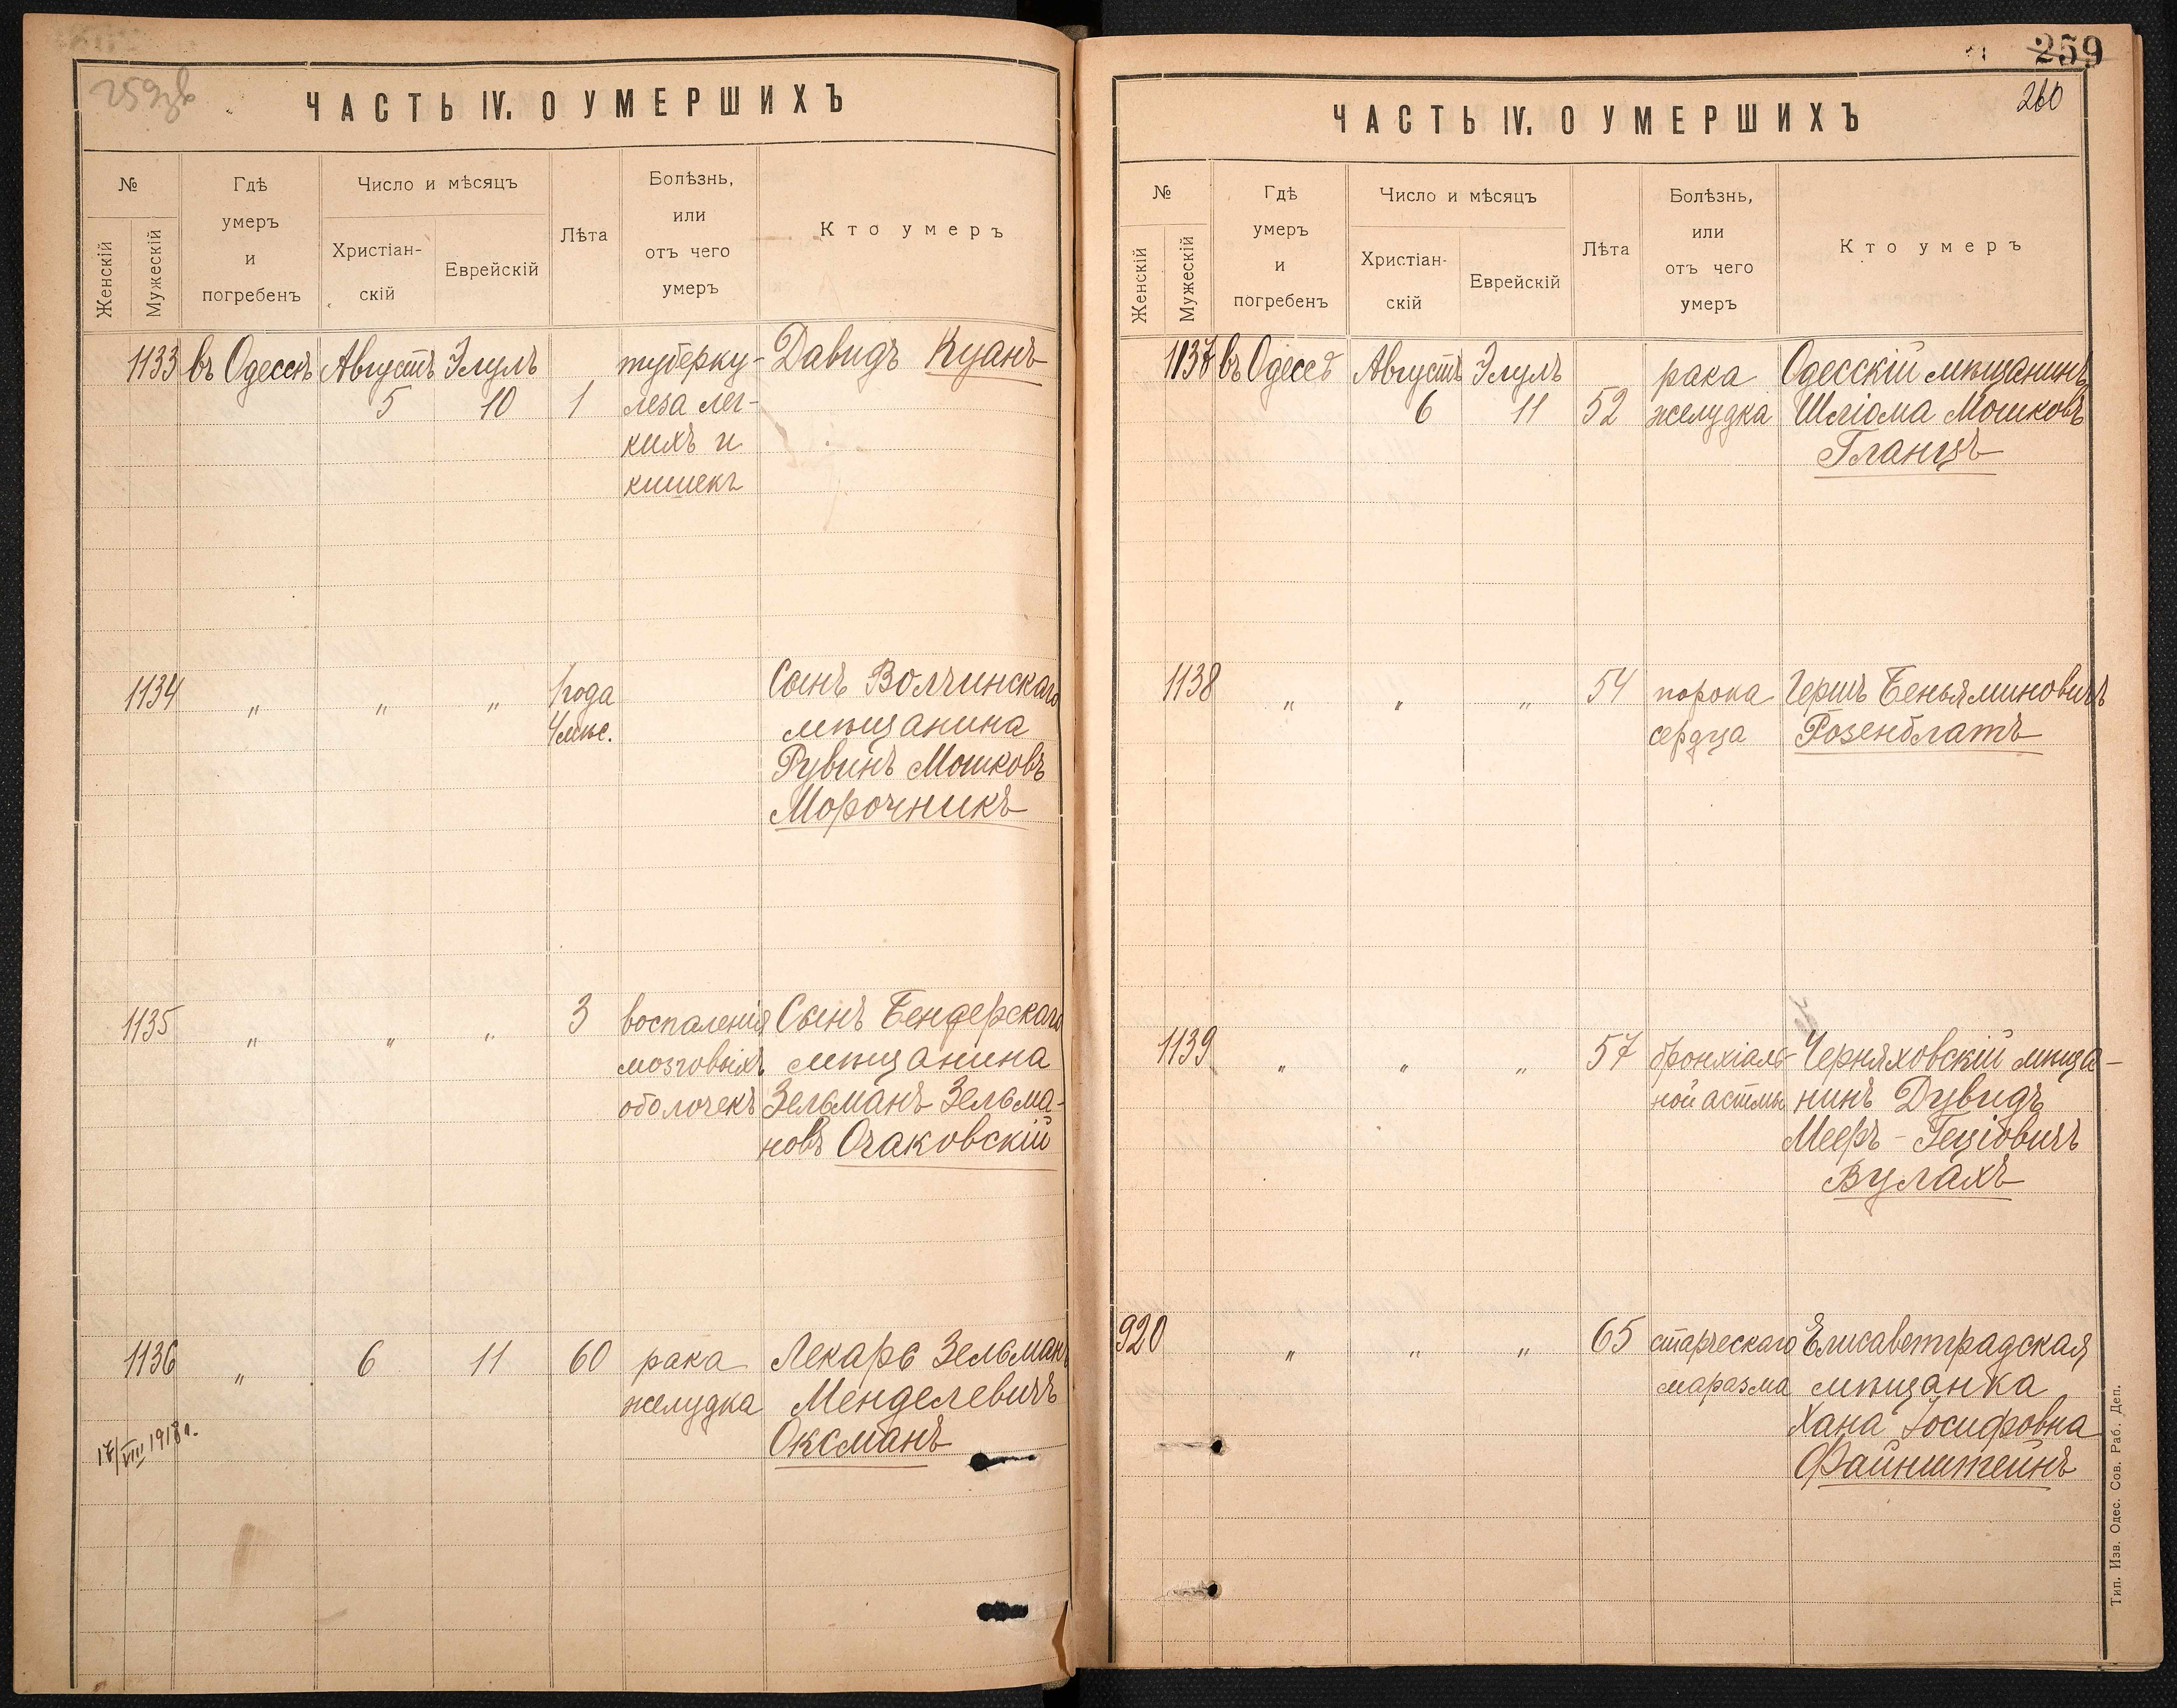 259зв
ЧАСТЬ IV. О УМЕРШИХЪ
№
Женскій
Мужескій
Гдѣ
умеръ
и
погребенъ
Число и мѣсяцъ
Христіан-
скій
Еврейскій
Лѣта
Болѣзнь,
или
отъ чего
умеръ
Кто умеръ
1133 въ Одессѣ Августъ Элулъ туберку- Давидъ Куанъ
5 10 1 леза лег-
кихъ и
кишекъ
1134 " " " 1 года Сынъ Волчинскаго
4 мѣс. мѣщанина
Рувинъ Мошковъ
Морочникъ
1135 " " " 3 воспаленія Сынъ Бендерскаго
мозговыхъ мѣщанина
оболочекъ Зельманъ Зельма-
новъ Очаковскій
1136 " 6 11 60 рака Лекарь Зельманъ
желудка Менделевичъ
Оксманъ
17/VIII 1918 г.
259
260
ЧАСТЬ IV. О УМЕРШИХЪ
№
Женскій
Мужескій
Гдѣ
умеръ
и
погребенъ
Число и мѣсяцъ
Христіан-
скій
Еврейскій
Лѣта
Болѣзнь,
или
отъ чего
умеръ
Кто умеръ
1137 въ Одессѣ Августъ Элулъ рака Одесскій мѣщанинъ
6 11 52 желудка Шліома Мошковъ
Гланцъ
1138 " " " 54 порока Гершъ Беньяминовичъ
сердца Розенблатъ
1139 " " " 57 бронхіаль- Черняховскій мѣща-
ной астмы нинъ Дувидъ
Мееръ - Геціовичъ
Вулахъ
920 " " " 65 старческаго Елисаветградская
маразма мѣщанка
Хана Іосифовна
Файнштейнъ
Тип. Изв. Одес. Сов. Раб. Деп.